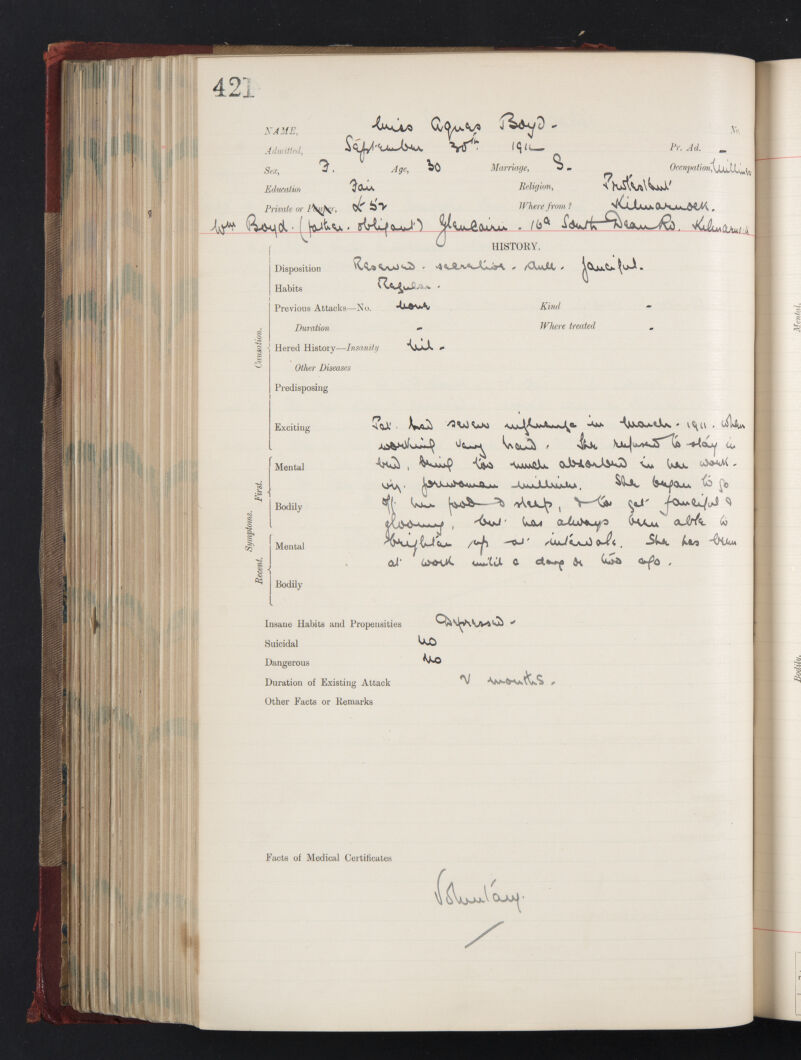 421
NAME, Miss Agnes Boyd - No.
Admitted, September 30th 1911 Pr. Ad. -
Sex, F. Age, 30 Marriage, S. Occupation, Milliner
Education Fair Religion, Protestant
Private or Pauper, £52 Where from? Kilmarnock.
Wm Boyd. (father. obligant) Glencairn. 16a South Dean Rd. Kilmarnock
HISTORY.
Disposition Reserved. secretive. dull. fanciful.
Habits Regular.
Previous Attacks—No. None Kind -
Duration - Where treated -
Hered History—Insanity Nil -
Other Diseases
Predisposing
Causation.
Exciting Pat. had severe influenza in March. 1911. when
working very hard. She refused to stay in
Mental bed, being too much absorbed in her work -
viz. forewoman milliner. She began to go
First.
Bodily off her food & sleep, & to get fanciful &
gloomy, but has always been able to
Symptoms.
Mental brighten up at intervals. She has been
at work until a day or two ago.
Recent.
Bodily
Insane Habits and Propensities Depressed -
Suicidal No
Dangerous No
Duration of Existing Attack V months.
Other Facts or Remarks
Facts of Medical Certificates
Voluntary.
Mental.
Bodily.